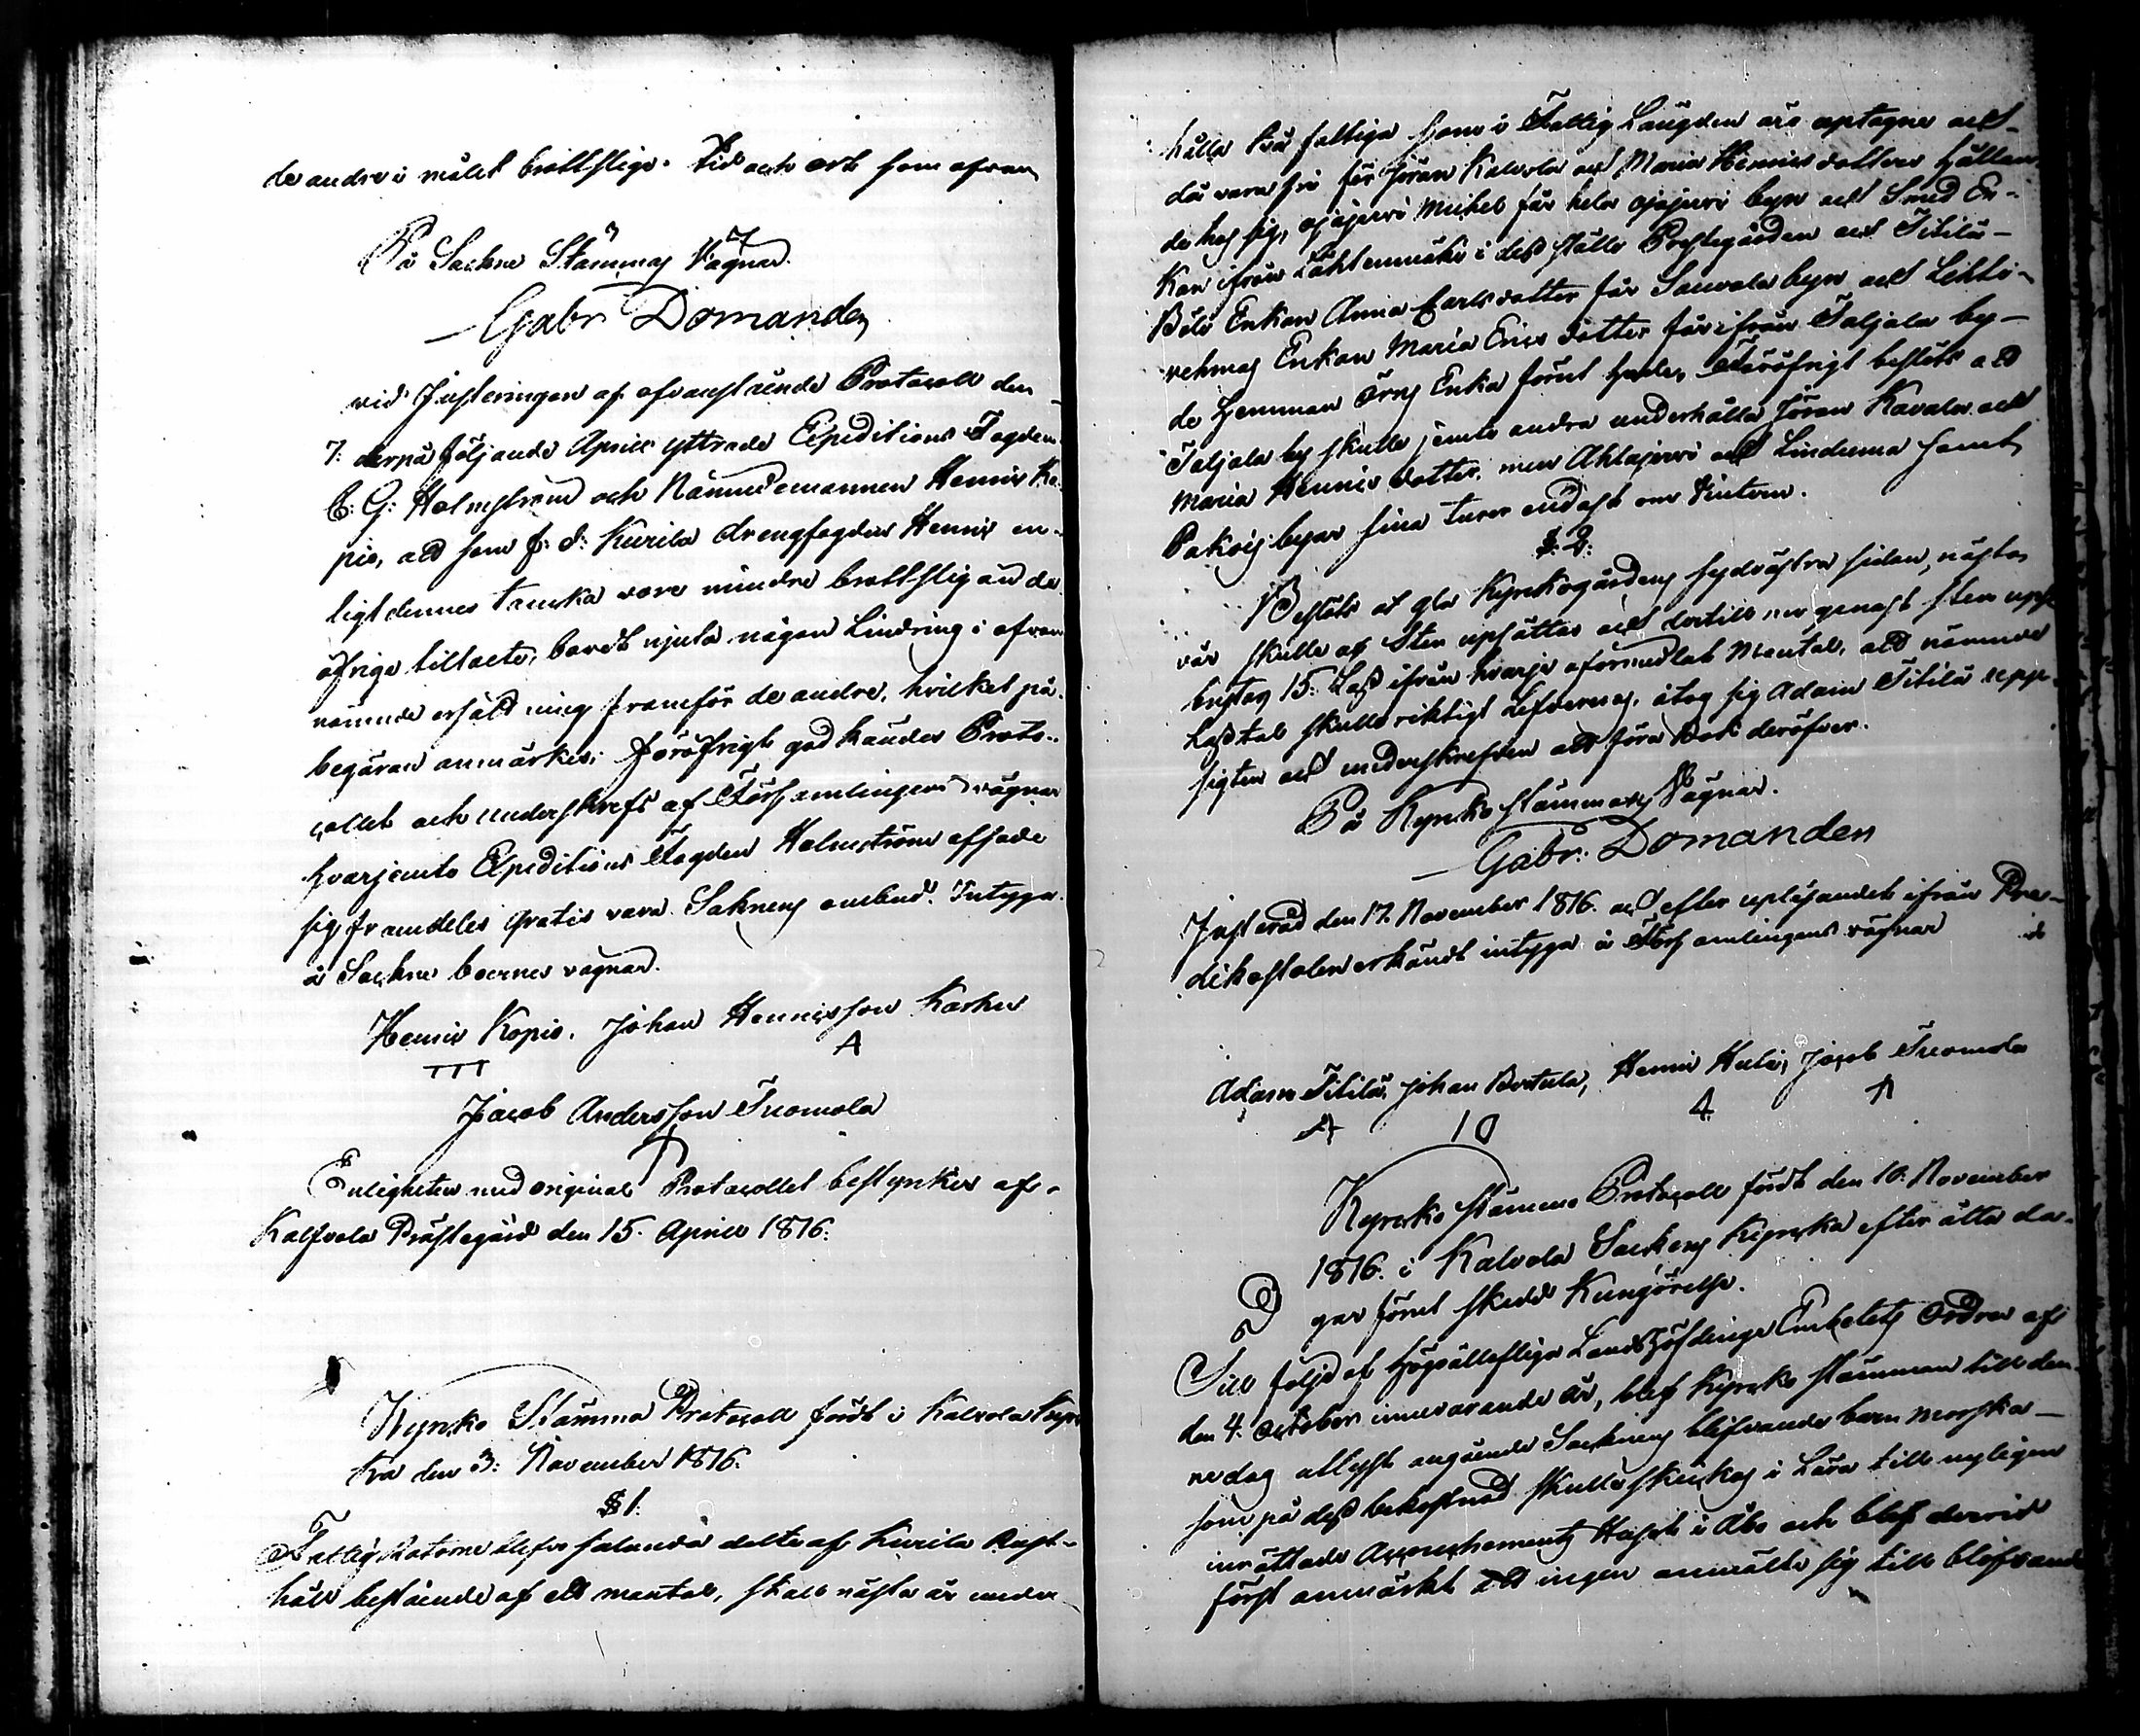 de andre i målet brottslige. Tid och ort som ofvan
På Sockne Stämmas Vägnar.
Gabr Domander
vid Justeringen af ofvanstående Protocoll den
7: derpå följande April yttrade Expeditions Fogden
C: G: Holmström och Nämndemannen Henric Ko-
pio, att som f. d. Kurila drengfogden Henric en-
ligt dennes tancka vore mindre brottslig än de
öfrige tilltalte, bordt njuta någon Lindring i ofvan
nämnde ersättning framför de andre, hvilket på
begäran anmärkes; föröfrigt godkändes Proto-
collet och underskrefs af Församlingens vägnar
hvarjemte Expeditions Fogden Holmström afsade
sig framdeles gratis vara Soknens ombud. Intyga
å Sockne boernes vägnar.
Henric Kopio. Johan Henricsson Karhu
Jacob Andersson Tuomola
Enligheten med original Protocollet bestyrkes af.
Kalfvola Prästegård den 15. April 1816.
Kyrko Stämma Protocoll fördt i Kalvola Kyr-
ka den 3: November 1816.
§ 1.
Fattig Rotorne blefvo salunda delte af Kurila Rust-
håll bestående af ett mantal, skall nästa år under
hålla två fattiga som i Fattig Längden äro uptagne och
då vara fri för Jöran Kalvola och Maria Henrics dotters hållan-
de hos sig, Ojajervi Michel får hela Ojajervi byn och Smed En-
kan ifrån Lahtenmäki i dess ställe Prestegården och Titilä
Böle Enkan Anna Carlsdotter får Sauvala byn och Lekki-
nehmas Enkan Maria Erics dotter får ifrån Taljala by
de Hemman Örns Enka förut hade. Föröfrigt beslöts att
Taljala by skulle jemte andra underhålla Jöran Kavala och
Maria Henrics dotter, men Ahlajervi och Lindema samt
Pakois byar sina turer endast om Vintern.
§: 2:
Beslöts at gla Kyrkogårdens sydvästra sidan, nästa
vår skulle af Sten upsättas och dertill nu genast sten upp-
brytas 15: Lass ifrån hvarje oförmedlat Mantal, att nämnde
Lasstal skulle riktigt lefvereras, åtog sig Adam Titilä upp-
sigten och underskrefven att föra Bok deröfver.
På Kyrko stämmans Vägnar.
Gabr: Domander
Justerad den 17. November 1816. och efter upläsandet ifrån Pre-
dikostolen erkändt intyga å Församlingens vägnar
Adam Titilä, Johan Bertula, Henric Huli, Jacob Tuomola
Kyrko stämmo Protocoll fördt den 10. November
1816. i Kalvola Sockens Kyrcka efter åtta da-
gar förut skedd Kungörelse.
Till följd af Högvällofliga Landshöfdinge Embetets Ordres af
den 4. October innevarande år, blef Kyrcko stämman till den-
ne dag utlyst angående Socknens blifvande barn morska
som på dess bekostnad skulle skickas i Lära till nyligen
inrättade Accouchements Huset i Åbo och blef dervid
först anmärkt att ingen anmälte sig till blifvande